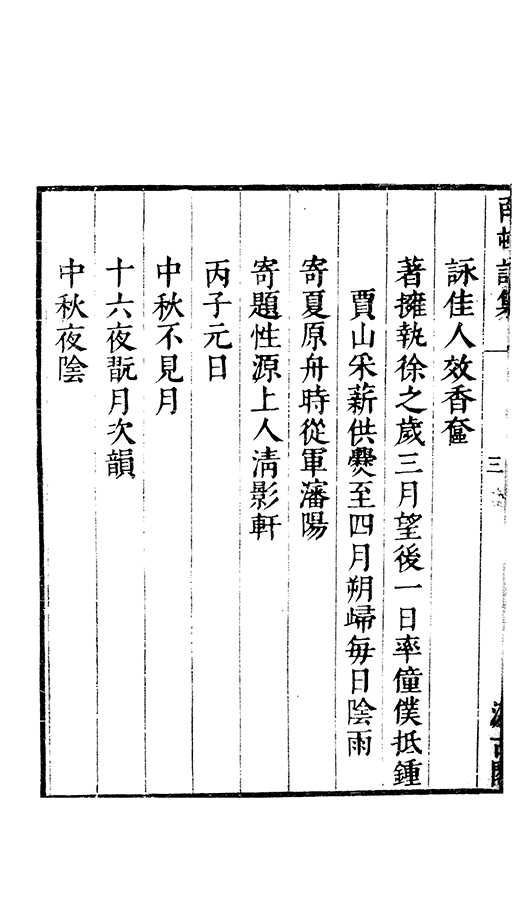 詩集 一 三 汲古閣
詠佳人效香奩
著擁執徐之歲三月望後一日率僮僕抵鍾
賈山采薪供爨至四月朔歸每日陰雨
寄夏原舟時從軍瀋陽
寄題性源上人清影軒
丙子元日
中秋不見月
十六夜翫月次韻
中秋夜陰